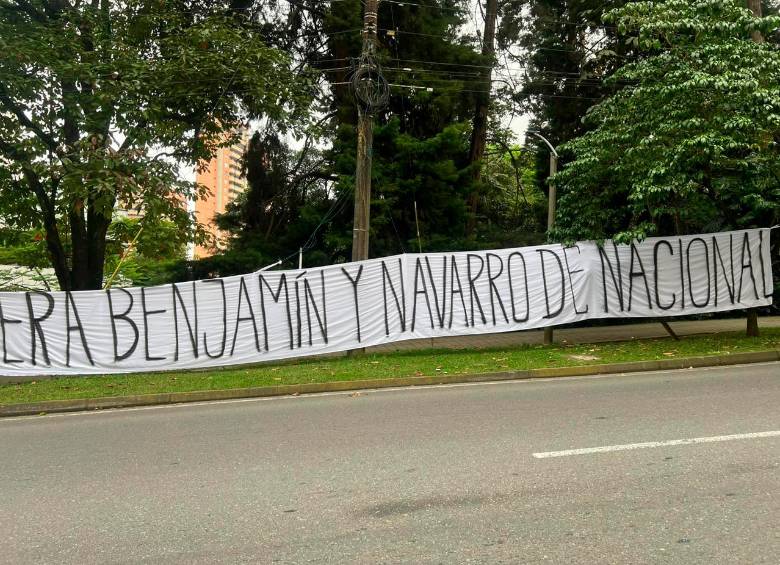 ERA BENJAMÍN Y NAVARRO DE NACIONAL